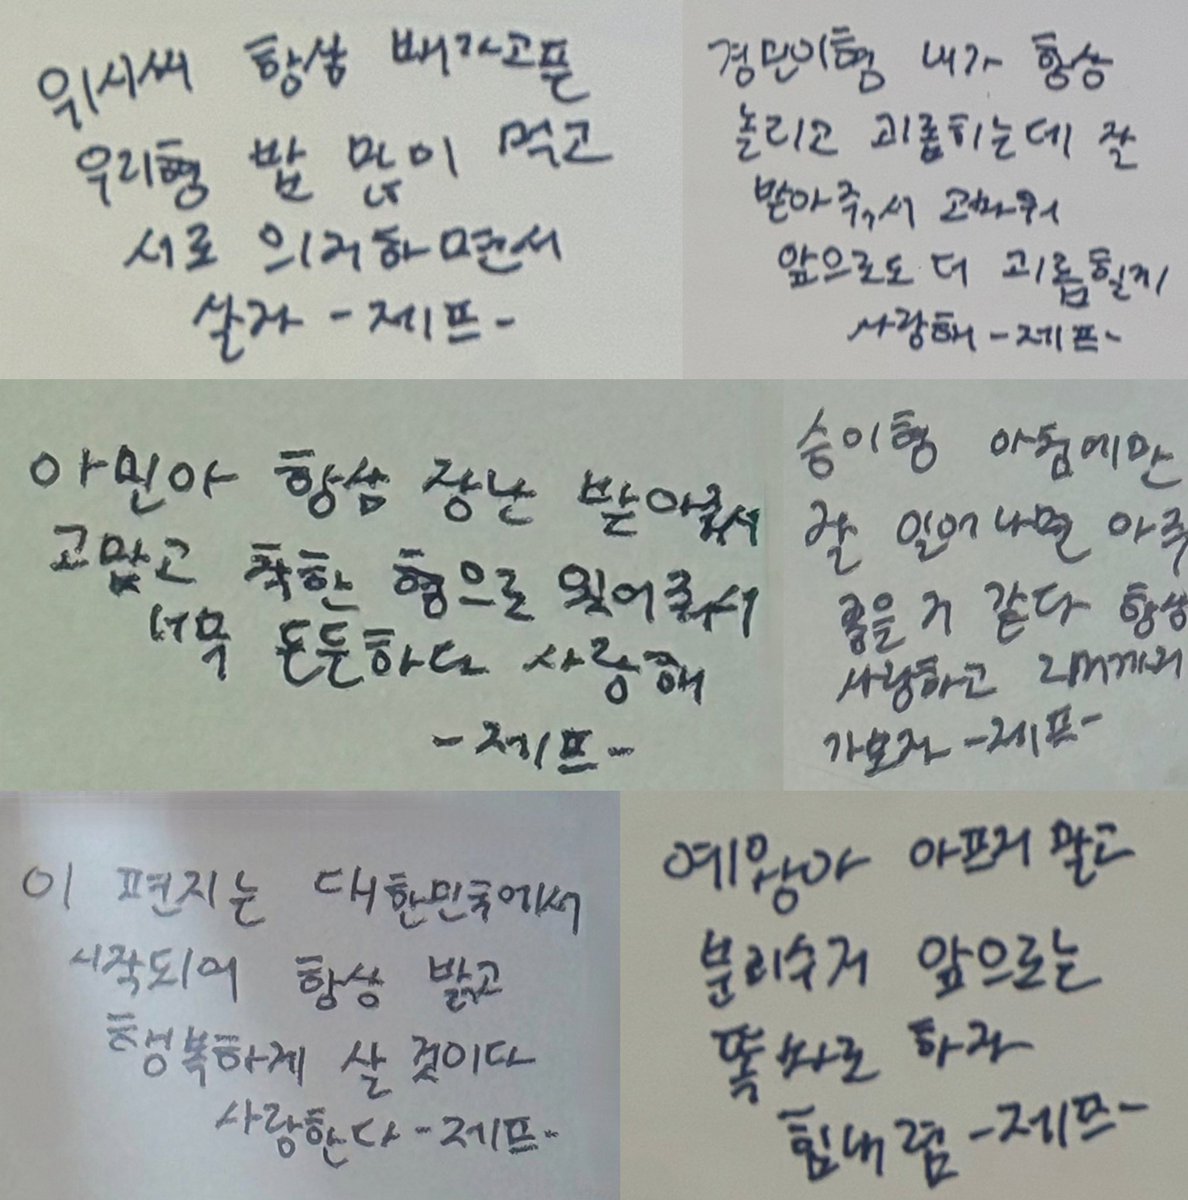 위시씨 항상 배가고픈
우리형 밥 많이 먹고
서로 의지하면서
살자 - 제프 -
경민이형 내가 항상
놀리고 괴롭히는데 잘
받아주서 고마워
앞으로도 더 괴롭힐게
사랑해 - 제프 -
아민아 항상 장난 받아줘서
고맙고 착한 형으로 있어줘서
너무 든든하다 사랑해
- 제프 -
승이형 아침에만
잘 일어나면 아주
좋을거 같다 항상
사랑하고
가보자 - 제프 -
이 편지는 대한민국에서
시작되어 항상 밝고
행복하게 살 것이다
사랑한다 - 제프 -
예왕아 아프지말고
분리수거 앞으로는
똑바로 하자
힘내렴 - 제프 -